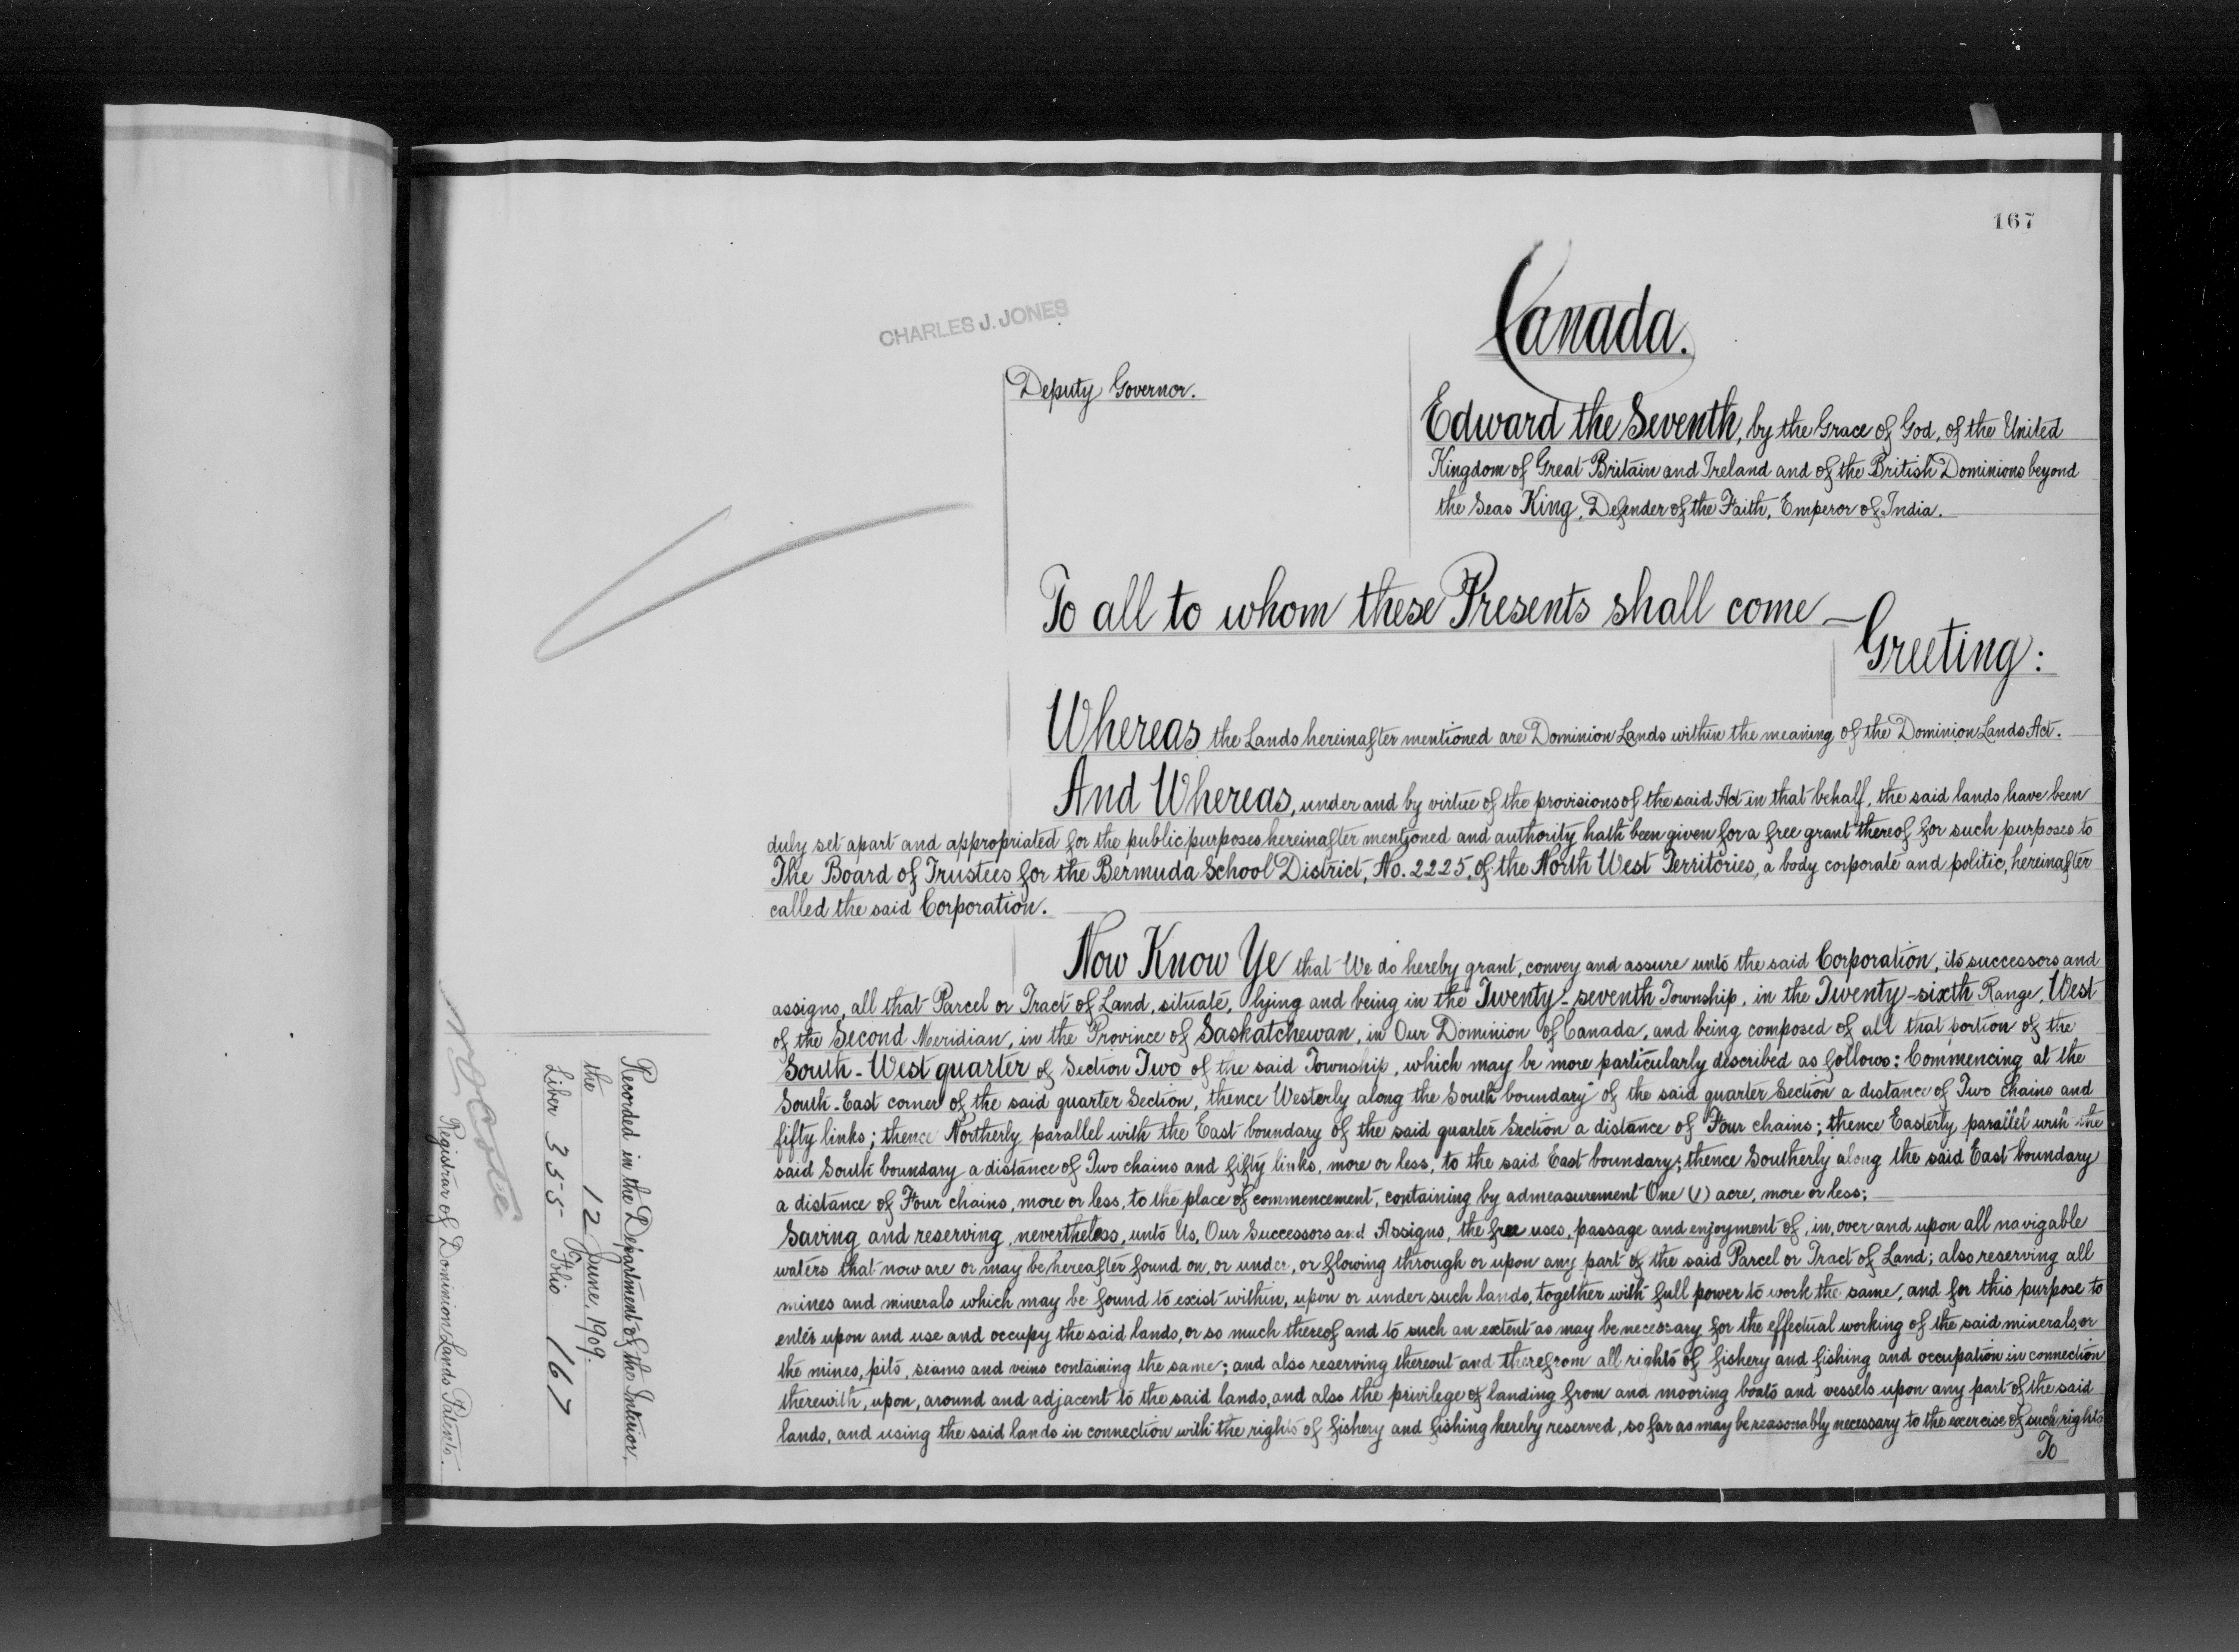 167
CHARLES J. JONES
Canada.
Deputy Governor.
Edward the Seventh, by the Grace of God, of the United
Kingdom of Great Britain and Ireland and of the British Dominions beyond
the Seas King, Defender of the Faith, Emperor of India.
To all to whom these Presents shall come —
Greeting:
Whereas the Lands hereinafter mentioned are Dominion Lands within the meaning of the Dominion Lands Act.
And Whereas, under and by virtue of the provisions of the said Act in that behalf, the said lands have been
duly set apart and appropriated for the public purposes hereinafter mentioned and authority hath been given for a free grant thereof for such purposes to
The Board of Trustees for the Bermuda School District, No. 2225, of the North West Territories, a body corporate and politic, hereinafter
called the said Corporation.
Now Know Ye that We do hereby grant, convey and assure unto the said Corporation, its successors and
assigns, all that Parcel or Tract of Land, situate, lying and being in the Twenty-seventh Township, in the Twenty-sixth Range, West
of the Second Meridian, in the Province of Saskatchewan, in Our Dominion of Canada, and being composed of all that portion of the
South-West quarter of Section Two of the said Township, which may be more particularly described as follows: Commencing at the
South-East corner of the said quarter Section, thence Westerly along the South boundary of the said quarter Section a distance of Two chains and
fifty links; thence Northerly parallel with the East boundary of the said quarter Section a distance of Four chains; thence Easterly parallel with the
said South boundary a distance of Two chains and fifty links, more or less, to the said East boundary; thence Southerly along the said East boundary
a distance of Four chains, more or less, to the place of commencement, containing by admeasurement One (1) acre, more or less;
Saving and reserving, nevertheless, unto Us, Our Successors and Assigns, the free uses, passage and enjoyment of, in, over and upon all navigable
waters that now are or may be hereafter found on, or under, or flowing through or upon any part of the said Parcel or Tract of Land; also reserving all
mines and minerals which may be found to exist within, upon or under such lands, together with full power to work the same, and for this purpose to
enter upon and use and occupy the said lands, or so much thereof and to such an extent as may be necessary for the effectual working of the said minerals, or
the mines, pits, seams and veins containing the same; and also reserving thereout and therefrom all rights of fishery and fishing and occupation in connection
therewith, upon, around and adjacent to the said lands, and also the privilege of landing from and mooring boats and vessels upon any part of the said
lands, and using the said lands in connection with the rights of fishery and fishing hereby reserved, so far as may be reasonably necessary to the exercise of such rights
To
Recorded in the Department of the Interior,
the 12 June, 1909.
Liber 355 Folio 167
Registrar of Dominion Lands Patents.